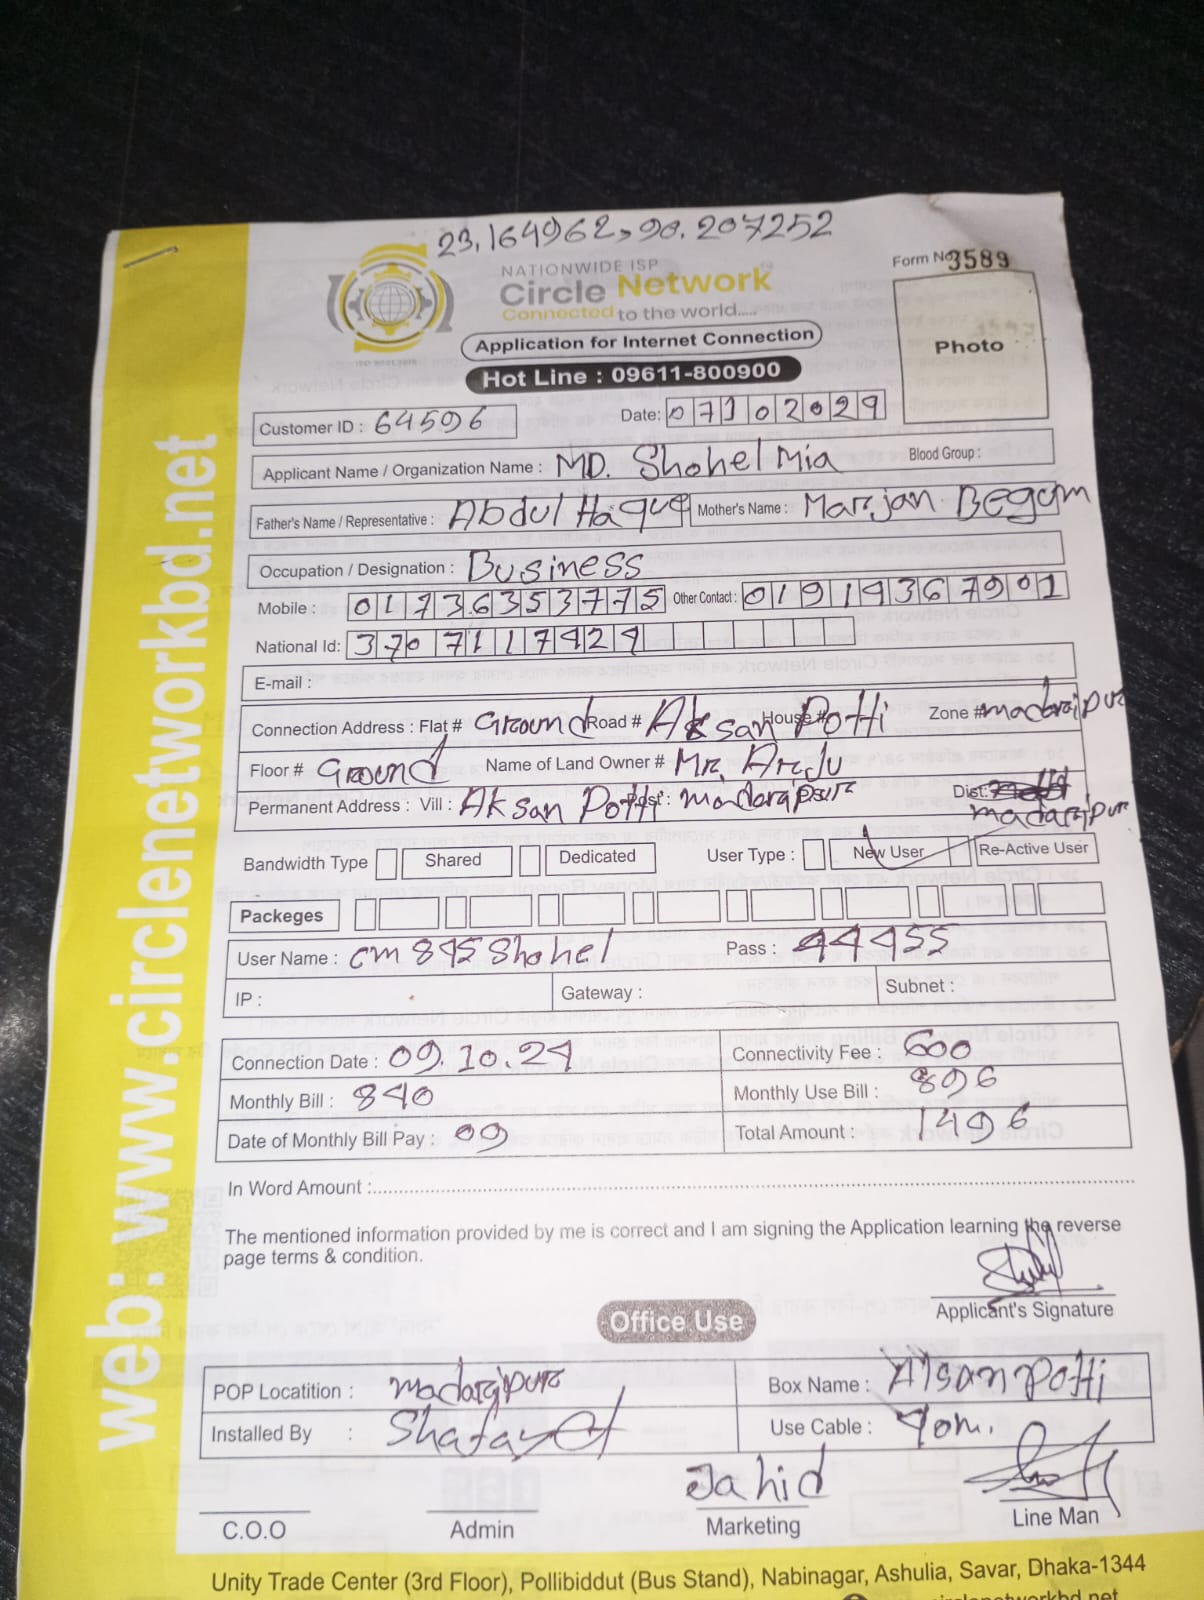 23.164962, 90.207252
NATIONWIDE ISP
Circle Network
Connected to the world.....
Form No 3589
Application for Internet Connection
Photo
Hot Line : 09611-800900
Customer ID : 64596 Date: 07102024
Applicant Name / Organization Name : MD. Shohel Mia Blood Group :
Father's Name / Representative : Abdul Haque Mother's Name : Marjan Begom
Occupation / Designation : Business
Mobile : 01736353775 Other Contact : 01919367901
National Id: 3707117424
E-mail :
Connection Address : Flat # Ground Road # Aksan Potti House # Zone # madaripur
Floor # Ground Name of Land Owner # Mr. Arju
Permanent Address : Vill : Aksan Potti Post : madaripur Dist: madaripur
Bandwidth Type Shared Dedicated User Type : New User Re-Active User
Packeges
User Name : cm 845 Shohel Pass : 44455
IP : Gateway : Subnet :
Connection Date : 09.10.24 Connectivity Fee : 600
Monthly Bill : 840 Monthly Use Bill : 896
Date of Monthly Bill Pay : 09 Total Amount : 1496
In Word Amount :
The mentioned information provided by me is correct and I am signing the Application learning the reverse
page terms & condition.
Applicant's Signature
Office Use
POP Locatition : madaripur Box Name : Aksan Potti
Installed By : Shafayet Use Cable : 40m.
Jahid
C.O.O Admin Marketing Line Man
Unity Trade Center (3rd Floor), Pollibiddut (Bus Stand), Nabinagar, Ashulia, Savar, Dhaka-1344
web: www.circlenetworkbd.net